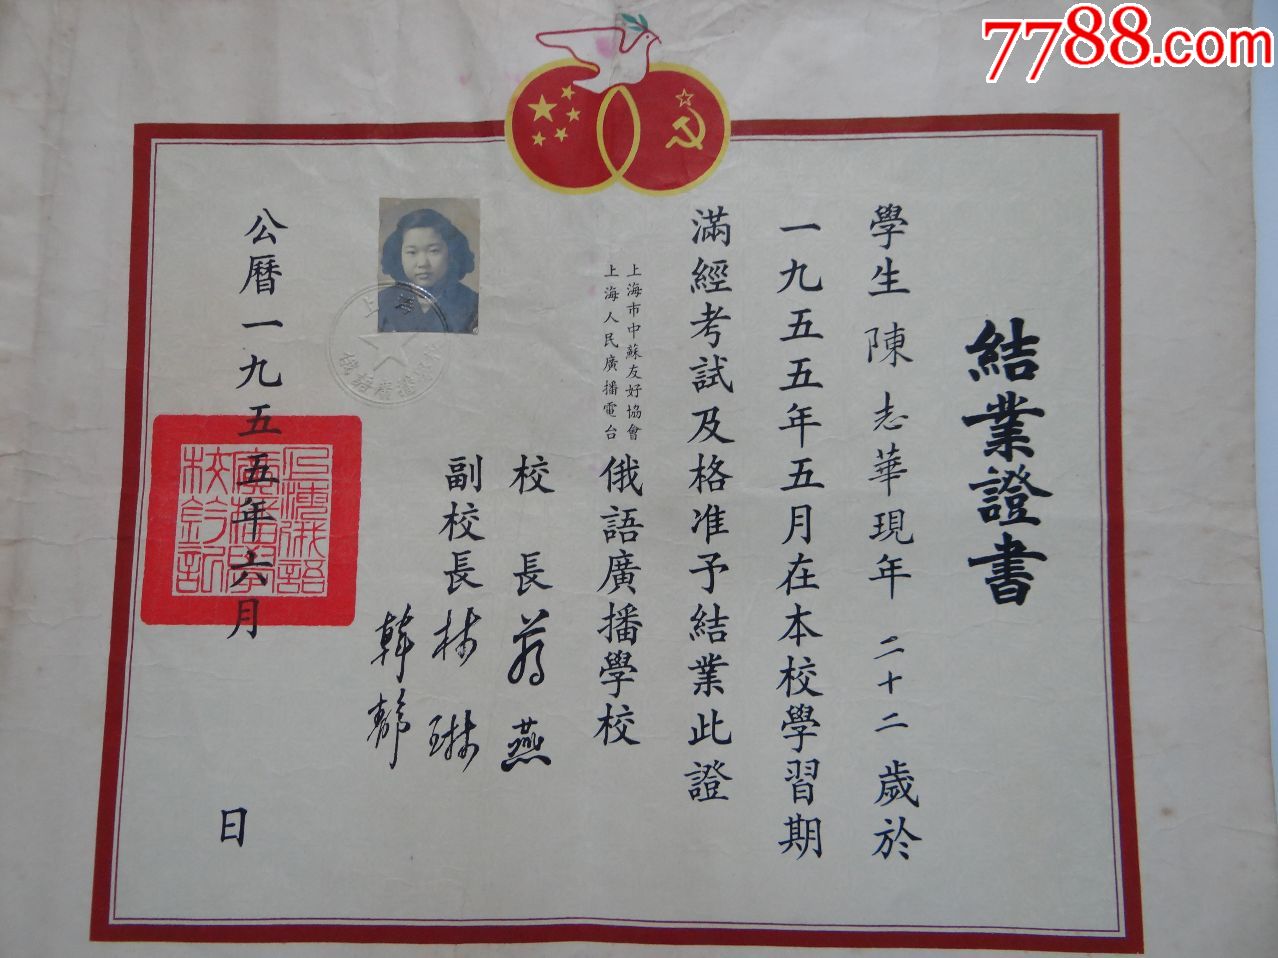 7788.com
結業證書
學生陳志華現年二十二歲於
一九五五年五月在本校學習期
滿經考試及格准予結業此證
上海市中蘇友好協會
上海人民廣播電台
俄語廣播學校
校長蔣燕
副校長林琳
韓靜
上海俄語廣播學校
上海俄語廣播學校鈐記
公曆一九五五年六月 日